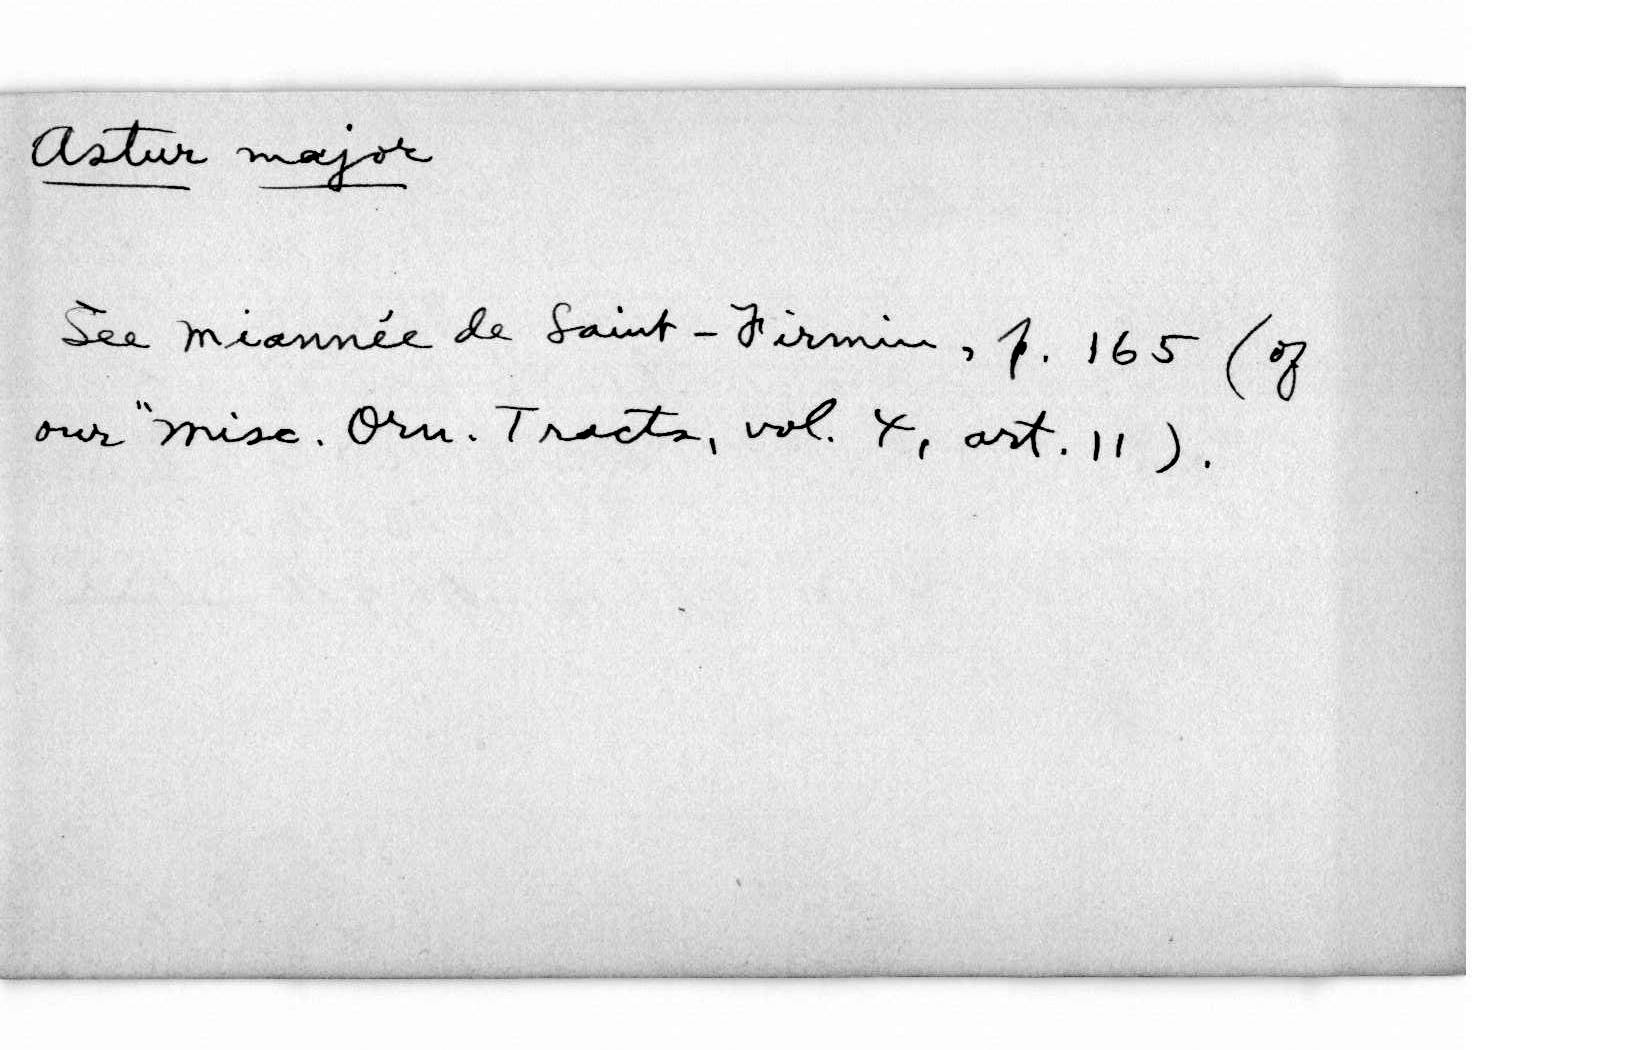 Astur major
See Miannée de Saint-Firmin, p. 165 (of
our "Misc. Orn. Tracts, vol. X, art. 11).